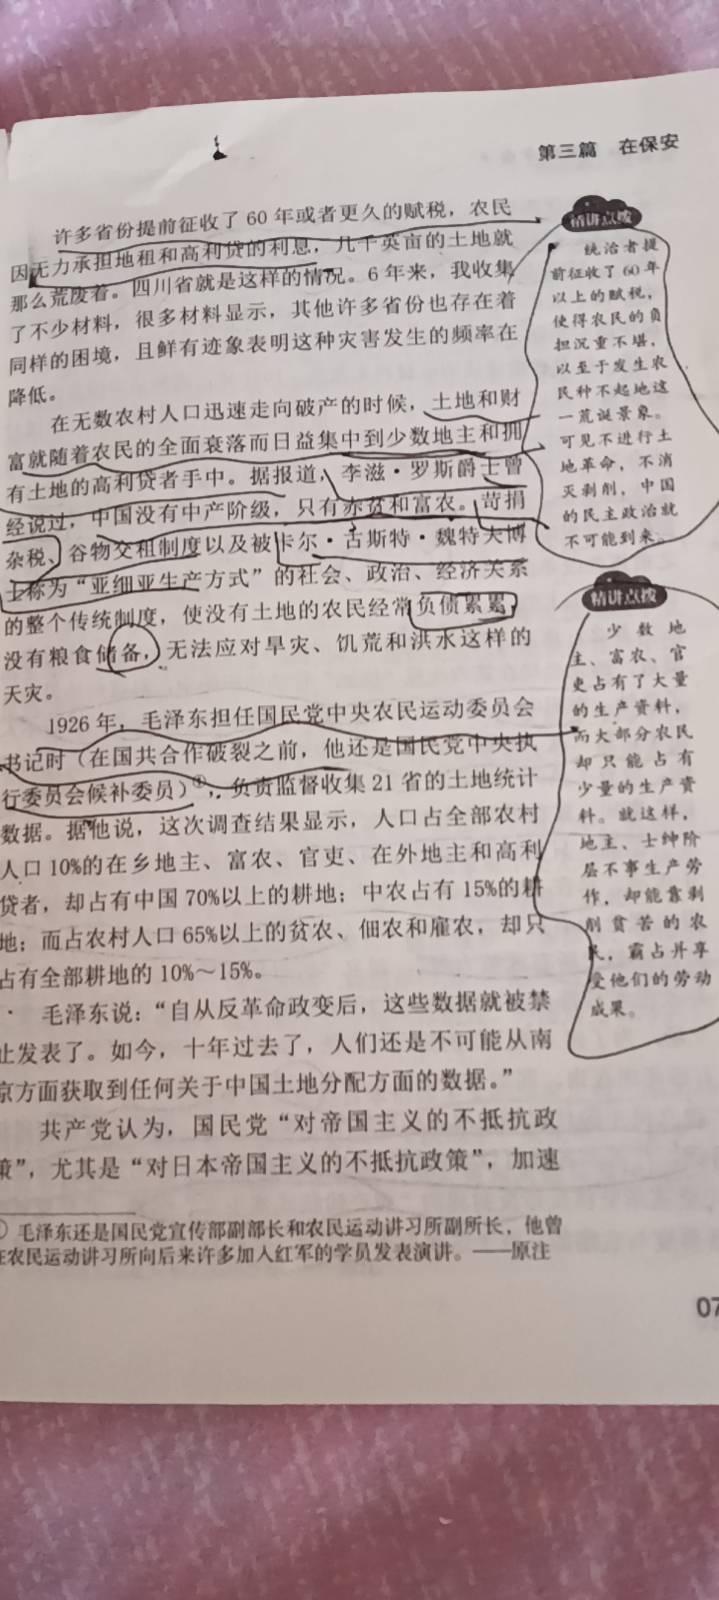 第三篇 在保安
许多省份提前征收了 60 年或者更久的赋税，农民
因无力承担地租和高利贷的利息，几千英亩的土地就
那么荒废着。四川省就是这样的情况。6 年来，我收集
了不少材料，很多材料显示，其他许多省份也存在着
同样的困境，且鲜有迹象表明这种灾害发生的频率在
降低。
在无数农村人口迅速走向破产的时候，土地和财
富就随着农民的全面衰落而日益集中到少数地主和拥
有土地的高利贷者手中。据报道，李滋·罗斯爵士曾
经说过，中国没有中产阶级，只有赤贫和富农。苛捐
杂税、谷物交租制度以及被卡尔·古斯特·魏特夫博
士称为“亚细亚生产方式”的社会、政治、经济关系
的整个传统制度，使没有土地的农民经常负债累累，
没有粮食储备，无法应对旱灾、饥荒和洪水这样的
天灾。
1926 年，毛泽东担任国民党中央农民运动委员会
书记时（在国共合作破裂之前，他还是国民党中央执
行委员会候补委员）①，负责监督收集 21 省的土地统计
数据。据他说，这次调查结果显示，人口占全部农村
人口 10%的在乡地主、富农、官吏、在外地主和高利
贷者，却占有中国 70%以上的耕地；中农占有 15%的耕
地；而占农村人口 65%以上的贫农、佃农和雇农，却只
占有全部耕地的 10%～15%。
毛泽东说：“自从反革命政变后，这些数据就被禁
止发表了。如今，十年过去了，人们还是不可能从南
京方面获取到任何关于中国土地分配方面的数据。”
共产党认为，国民党“对帝国主义的不抵抗政
策”，尤其是“对日本帝国主义的不抵抗政策”，加速
① 毛泽东还是国民党宣传部副部长和农民运动讲习所副所长，他曾
在农民运动讲习所向后来许多加入红军的学员发表演讲。——原注
精讲点拨
统治者提
前征收了 60 年
以上的赋税，
使得农民的负
担沉重不堪，
以至于发生农
民种不起地这
一荒诞景象。
可见不进行土
地革命，不消
灭剥削，中国
的民主政治就
不可能到来。
精讲点拨
少数地
主、富农、官
吏占有了大量
的生产资料，
而大部分农民
却只能占有
少量的生产资
料。就这样，
地主、士绅阶
层不事生产劳
作，却能靠剥
削贫苦的农
民，霸占并享
受他们的劳动
成果。
07